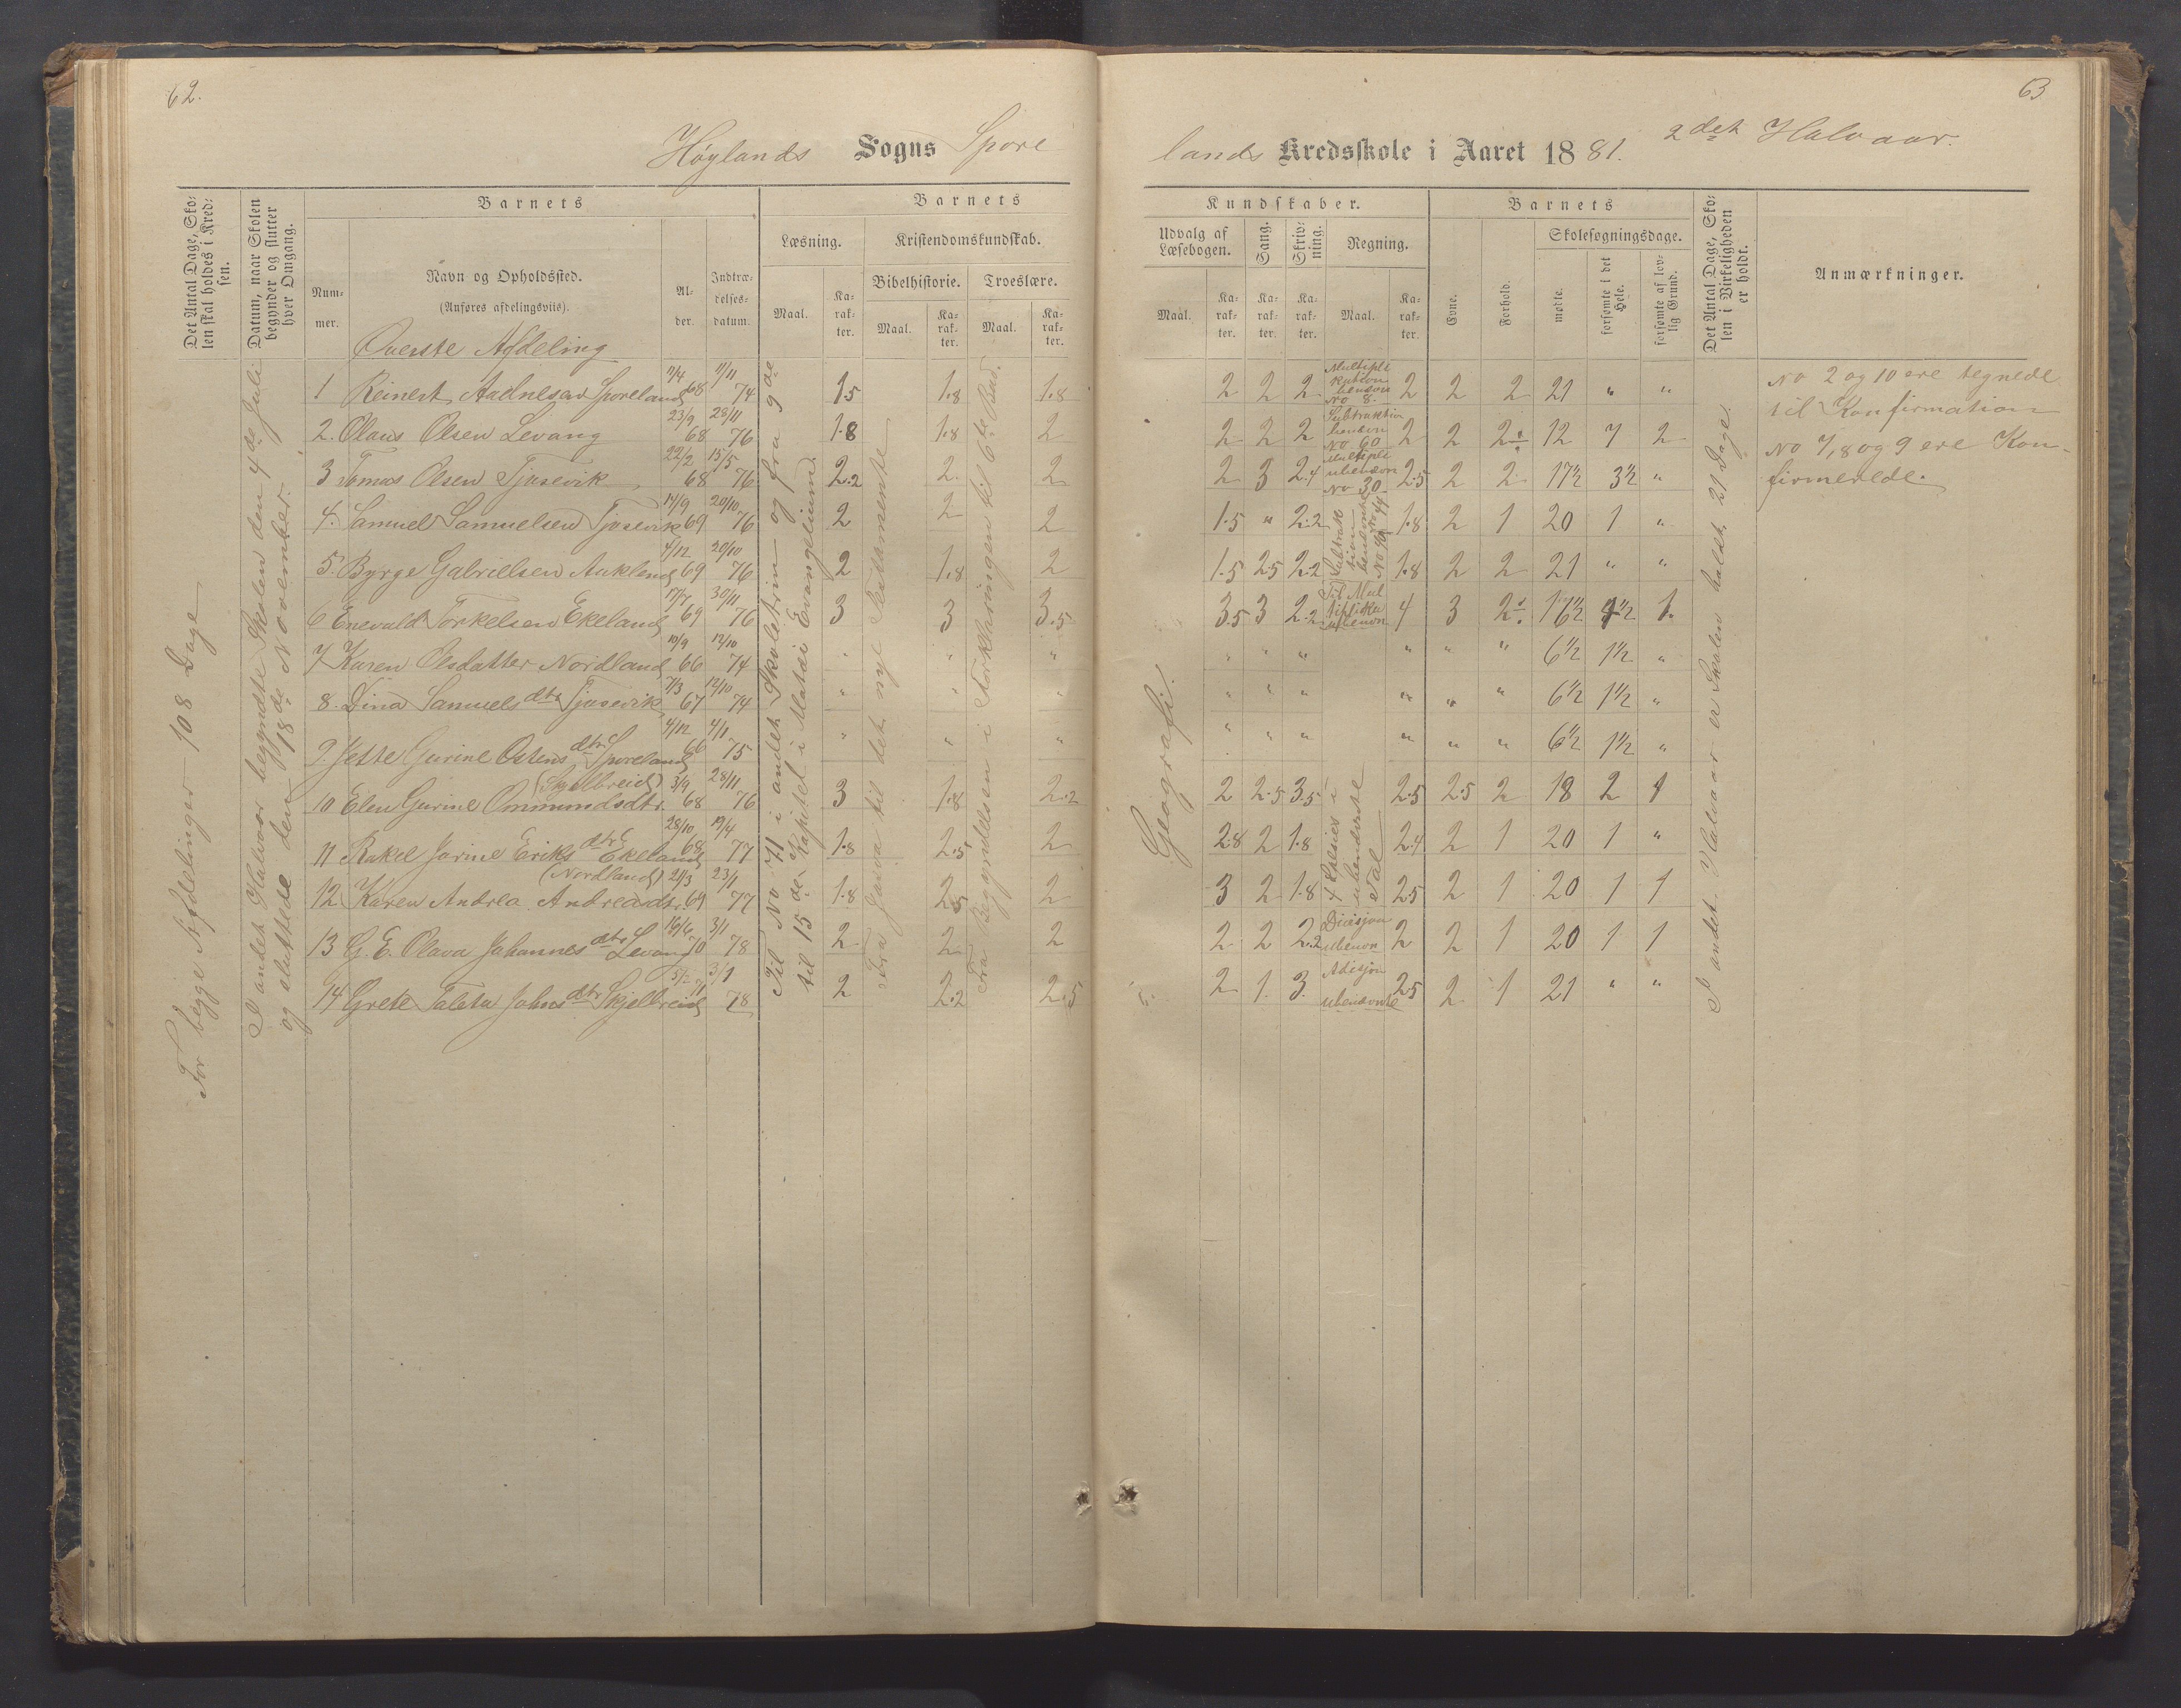 62.
63
Høylands Sogns Spore-
lands Kredsskole i Aaret 1881. 2det Halvaar.
Det Antal Dage, Skolen skal holdes i Kredsen.
Datum, naar Skolen begynder og slutter hver Omgang.
Barnets
Nummer.
Navn og Opholdssted.
(Anføres afdelingsviis).
Alder.
Indtrædelsesdatum.
Barnets
Læsning.
Kristendomskundskab.
Bibelhistorie. Troeslære.
Maal. Karakter. Maal. Karakter. Maal. Karakter.
Kundskaber.
Udvalg af Læsebogen. Sang. Skrivning. Regning.
Maal. Karakter. Karakter. Karakter. Maal. Karakter.
Barnets
Evne. Forhold.
Skolesøgningsdage.
mødte. forsømte i det Hele. forsømte af lovlig Grund.
Det Antal Dage, Skolen i Virkeligheden er holdt.
Anmærkninger.
Øverste Afdeling
For begge Afdelinger 108 Dage
I andet Halvaar begyndte Skolen den 4de Juli
og sluttede den 18de November.
Til No 71 i andet Skoletrin og fra 9de
til 15de Kapitel i Matæi Evangelium.
Fra det nye Testamente
Fra Begyndelsen i Forklaringen til 6te Bud.
Geografi.
I andet Halvaar er Skolen holdt 21 Dage.
1 Reinert Aadnesen Sporeland 11/4 68 11/11 74 1.5 1.8 1.8 2 2 2 Multiplikation benævn No 8. 2 2 2 21 " "
2. Olaus Olsen Levang 23/9 68 28/11 76 1.8 1.8 2 2 2 2 Subtraktion benævn No 60 2 2 2 12 7 2
3 Tomas Olsen Tjusevik 22/2 68 15/5 76 2.2 2. 2 2 3 2.4 Multipli ubenævn No 30 2.5 2 2 17½ 3½ "
4. Samuel Samuelsen Tjusevik 14/9 69 20/10 76 2 2 2 1.5 " 2.2 1.8 2 1 20 1 "
5. Byrge Gabrielsen Aukland 4/12 69 20/10 76 2 1.8 2 1.5 2.5 2.2 1.8 2 2 21 " "
6 Enevald Torkelsen Ekeland 17/7 69 30/11 76 3 3 3.5 3.5 3 2.2 Til Multiplika ubenævn 4 3 2 1
7 Karen Olsdatter Nordland 10/9 66 12/10 74 " " " " " " " " " 6½ 1½ "
8. Dina Samuelsdtr Tjusevik 7/3 67 12/10 74 " " " " " " " " " 6½ 1½ "
9. Jette Gurine Ostensdtr Sporeland 4/12 66 4/11 75 " " " " " " " " 6½ 1½ "
10 Elen Gurine Ommundsdtr. (Skjelbreid) 3/9 68 28/11 76 3 1.8 2.2 2 2.5 3.5 2.5 2.5 2 18 2 1
11 Rakel Jorine Eriksdtr Ekeland 28/10 68 19/4 77 1.8 2.5 2 2.8 2 1.8 4 Spesies i ubenævnte Tal 2.4 2 1 20 1 "
12. Karen Andrea Andreasdtr. (Nordland) 21/3 69 23/1 77 1.8 2 3 2 1.8 2.5 2 1 20 1 1
13 G. E. Olava Johannesdtr Levang 16/6 70 3/1 78 2 2 2 2 2 2.2 Divisjon ubenævn 2 2 1 20 1 1
14 Grete Taleta Johnsdtr Skjelbreid 71 3/1 78 2 2.2 2.5 2 1. 3. Adisjon ubenævnte 2.5 2 1 21 " "
No 2 og 10 ere tegnede
til Konfirmation
No 7, 8 og 9 ere Kon-
firmerede.